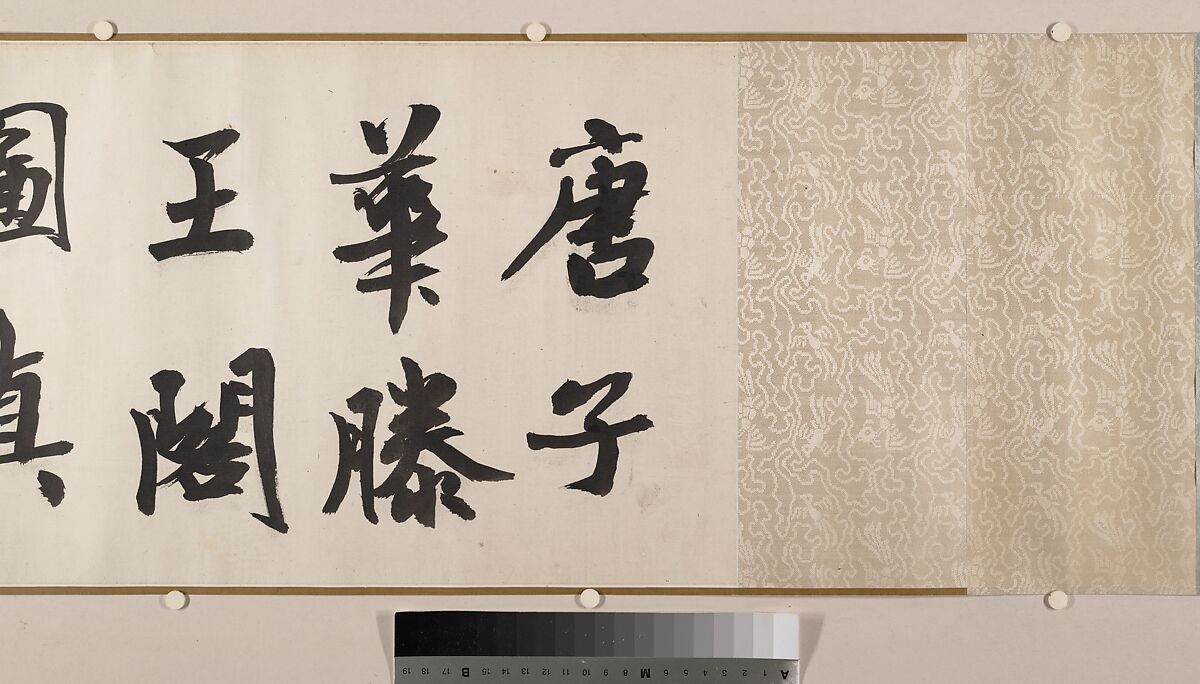 唐子
華滕
王閣
圖真
A 1 2 3 4 5 6 M 8 9 10 11 12 13 14 15 B 17 18 19